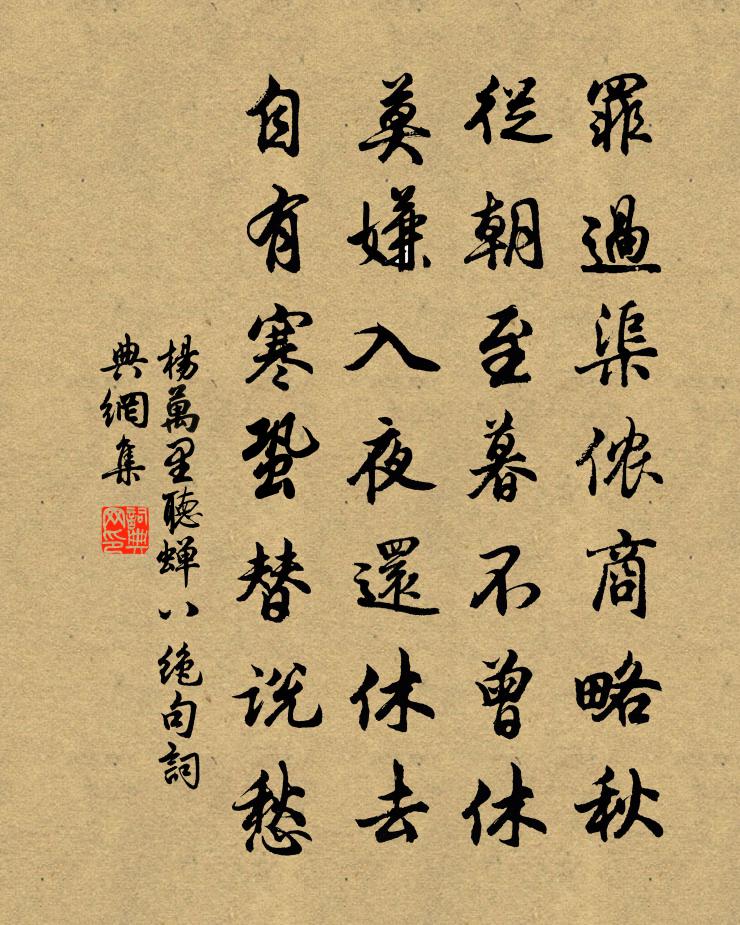 罪過渠儂商略秋
從朝至暮不曾休
莫嫌入夜還休去
自有寒蛩替說愁
楊萬里聽蟬八絕句詞
典網集
詞典網印